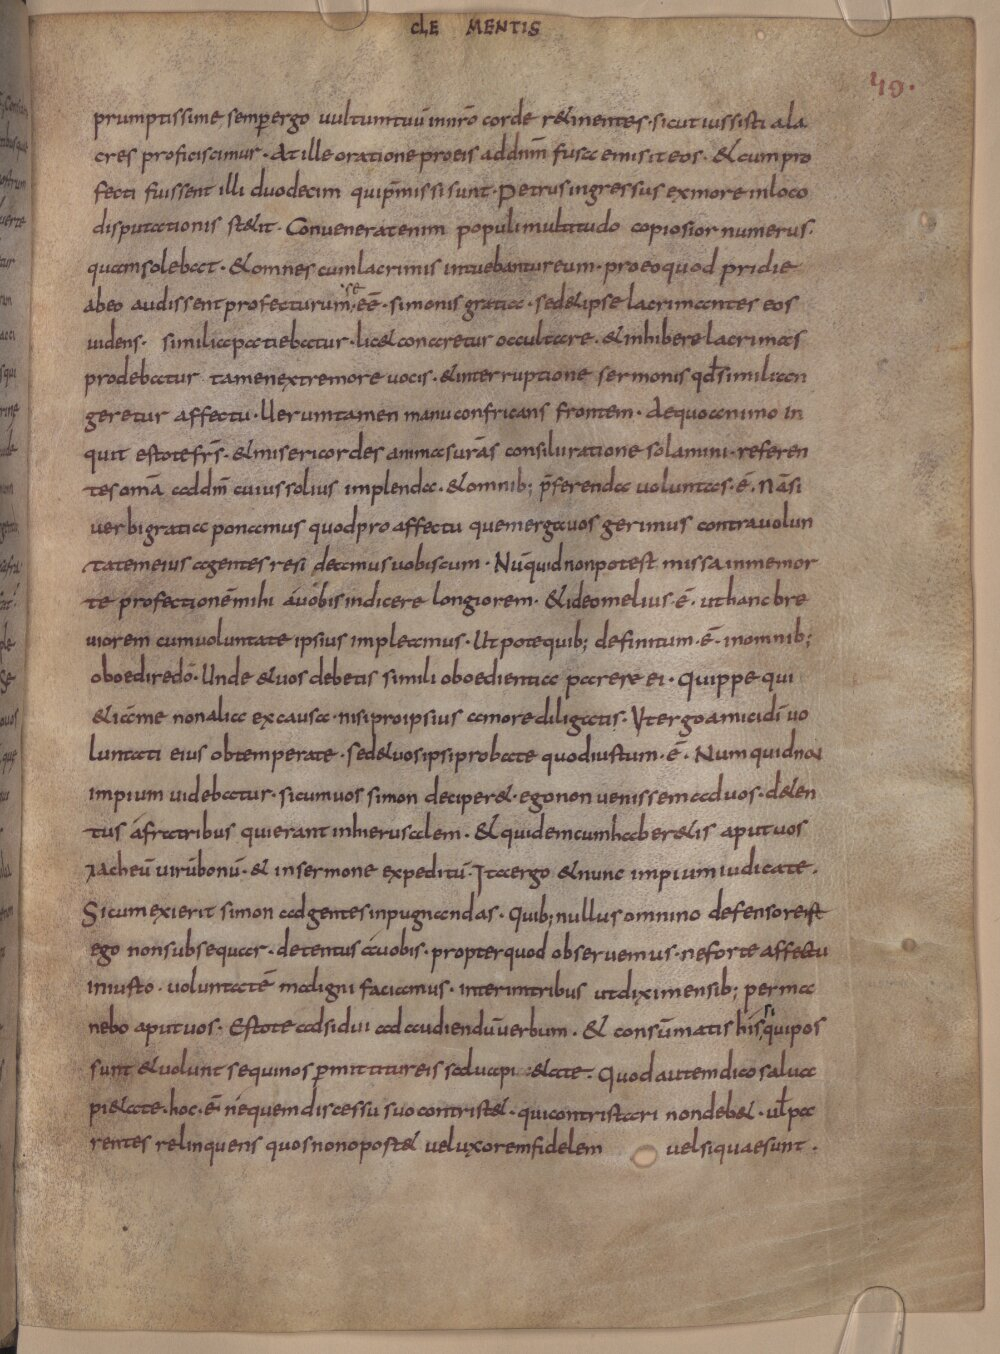 CLEMENTIS
49.
prumptissime semp ergo uultum tuū in nr̄o corde r&inentes · sicut iussisti ala
cres proficiscimur · At ille oratione pro eis ad dnm̄ fusa emisit eos · & cum pro
fecti fuissent illi duodecim qui p̄missi sunt · Petrus ingressus ex more in loco
disputationis st&it · Conuenerat enim populi multitudo copiosior numerus ·
quam solebat · & omnes cum lacrimis intuebantur eum · pro eo quod pridie
ab eo audissent profecturum se eē · simonis gratia · sed & ipse lacrimantes eos
uidens · similia patiebatur · lic& conaretur occultare · & inhibere lacrimas
prodebatur tamen ex tremore uocis · & interruptione sermonis qđ simili an
geretur affectu · Uerumtamen manu confricans frontem · aequo animo in
quit estote fr̄s · & misericordes animas ur̄as consilii ratione solamini · referen
tes omā ad dnm̄ cuius solius implenda · & omnib; p̄ferenda uoluntas · ē · Nā si
uerbi gratia ponamus quod pro affectu quem erga uos gerimus contra uolun
tatem eius agentes resi deamus uobiscum · Nūquid non potest missa in me mor
te profectionē mihi a uōbis indicere longiorem · & ideo melius · ē · ut hanc bre
uiorem cum uoluntate ipsius impleamus · Ut pote quib; definitum · ē · in omnib;
oboedire dō · Unde & uos debetis simili oboedientia parere ei · Quippe qui
& iāme non alia ex causa · nisi pro ipsius amore diligatis · Ut ergo amici dī uo
luntati eius obtemperate · sed & uos ipsi probate quod iustum · ē · Numquid non
impium uidebatur · si cum uos simon deciper& · ego non uenissem ad uos · d&en
tus a fratribus qui erant in hierusalem · & quidem cum haber&is aput uos
zacheū uirū bonū · & in sermone expeditū · Ita ergo & nunc impium iudicate ·
Si cum exierit simon ad gentes inpugnandas · quib; nullus omnino defensor est
ego non subsequar · detentus a uobis · propter quod obseruemus · ne forte affectu
iniusto · uoluntatē maligni faciamus · interim tribus ut diximensib; permа
nebo aput uos · Estote adsidui ad audiendū uerbum · & consūmatis his si qui pos
sunt & uolunt sequi nos p̄mittitur eis salua pi&ate · Quod autem dico salua
pi&ate · hoc · ē · nequem discessu suo contrist& · qui contristari non deb& · ul̄ pa
rentes relinquens quos non oport& uel uxorem fidelem uel si quae sunt ·